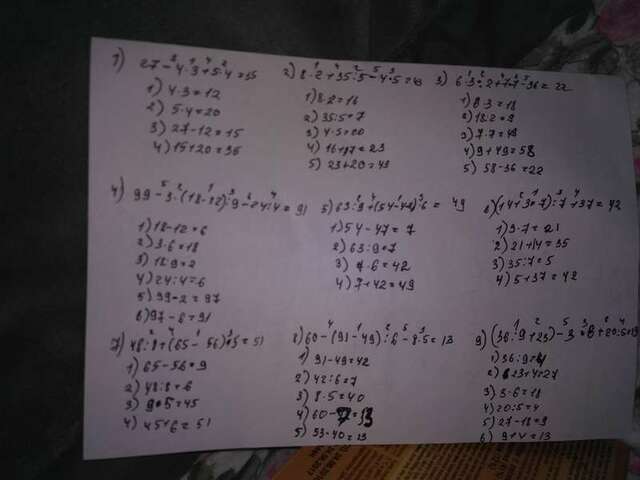 1) 27-4·3+5·4=35
1) 4·3=12
2) 5·4=20
3) 27-12=15
4) 15+20=35
2) 8·2+35:5-4·5=
1) 8·2=16
2) 35:5=7
4) 16+7=23
5) 23+20=43
3) 6·3:2+7·7-36=22
1) 6·3=18
2) 18:2=9
3) 7·7=49
4) 9+49=58
5) 58-36=22
4) 99-3·(18-12):9-24:4=91
1) 18-12=6
2) 3·6=18
3) 18:9=2
4) 24:4=6
5) 99-2=97
6) 97-6=91
5) 63:9+(54-47)·6=49
1) 54-47=7
2) 63:9=7
3) 7·6=42
4) 7+42=49
6) (14+3·7):7+37=42
1) 3·7=21
2) 21+14=35
3) 35:7=5
4) 5+37=42
7) 48:8+(65-56)·5=51
1) 65-56=9
2) 48:8=6
3) 9·5=45
4) 45+6=51
8) 60-(91-49):6-8·5=13
1) 91-49=42
2) 42:6=7
3) 8·5=40
4) 60-7=53
5) 53-40=13
9) (36:9+23)-3·6+20:5=13
1) 36:9=4
2) 23+4=27
3) 3·6=18
4) 20:5=4
5) 27-18=9
6) 9+4=13